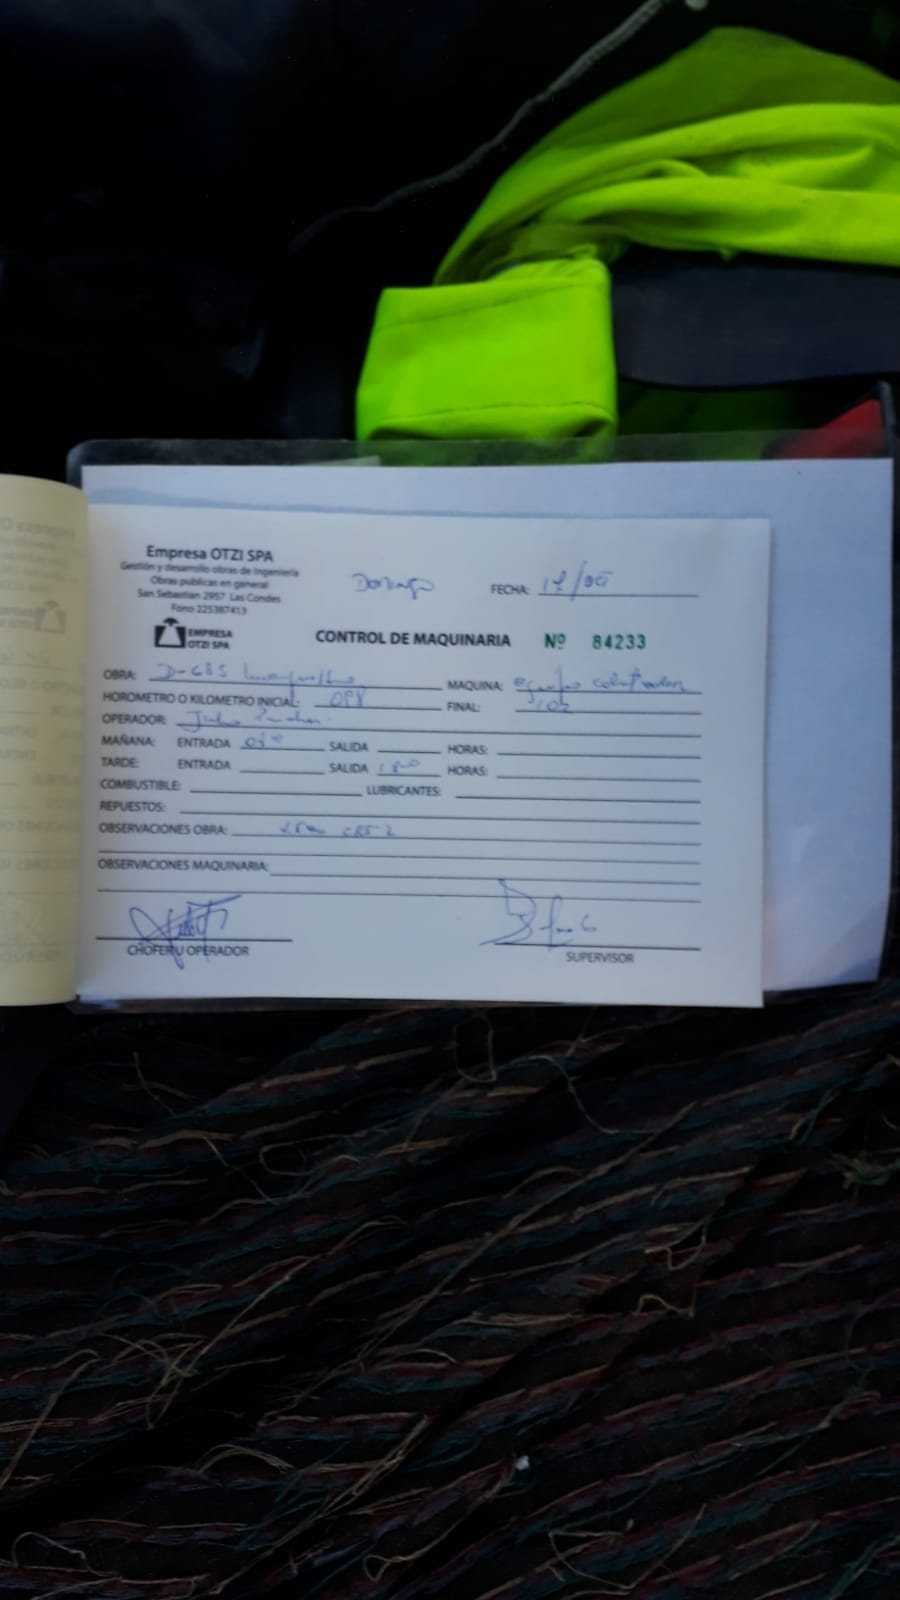 Empresa OTZI SPA
Gestión y desarrollo obras de Ingeniería
Obras publicas en general
San Sebastian 2957 Las Condes
Fono 225387413
EMPRESA
OTZI SPA
Domingo
FECHA:
CONTROL DE MAQUINARIA Nº 84233
OBRA: D-685 MAQUINA: Equipo
HOROMETRO O KILOMETRO INICIAL: 098 FINAL: 102
OPERADOR: Julio
MAÑANA: ENTRADA SALIDA HORAS:
TARDE: ENTRADA SALIDA 1800 HORAS:
COMBUSTIBLE: LUBRICANTES:
REPUESTOS:
OBSERVACIONES OBRA:
OBSERVACIONES MAQUINARIA:
CHOFER U OPERADOR SUPERVISOR